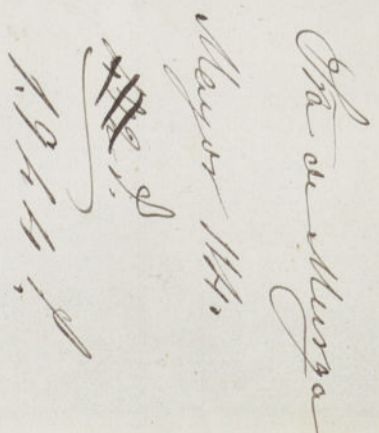 Sra de Murga
Mayor 114.
1.944. S